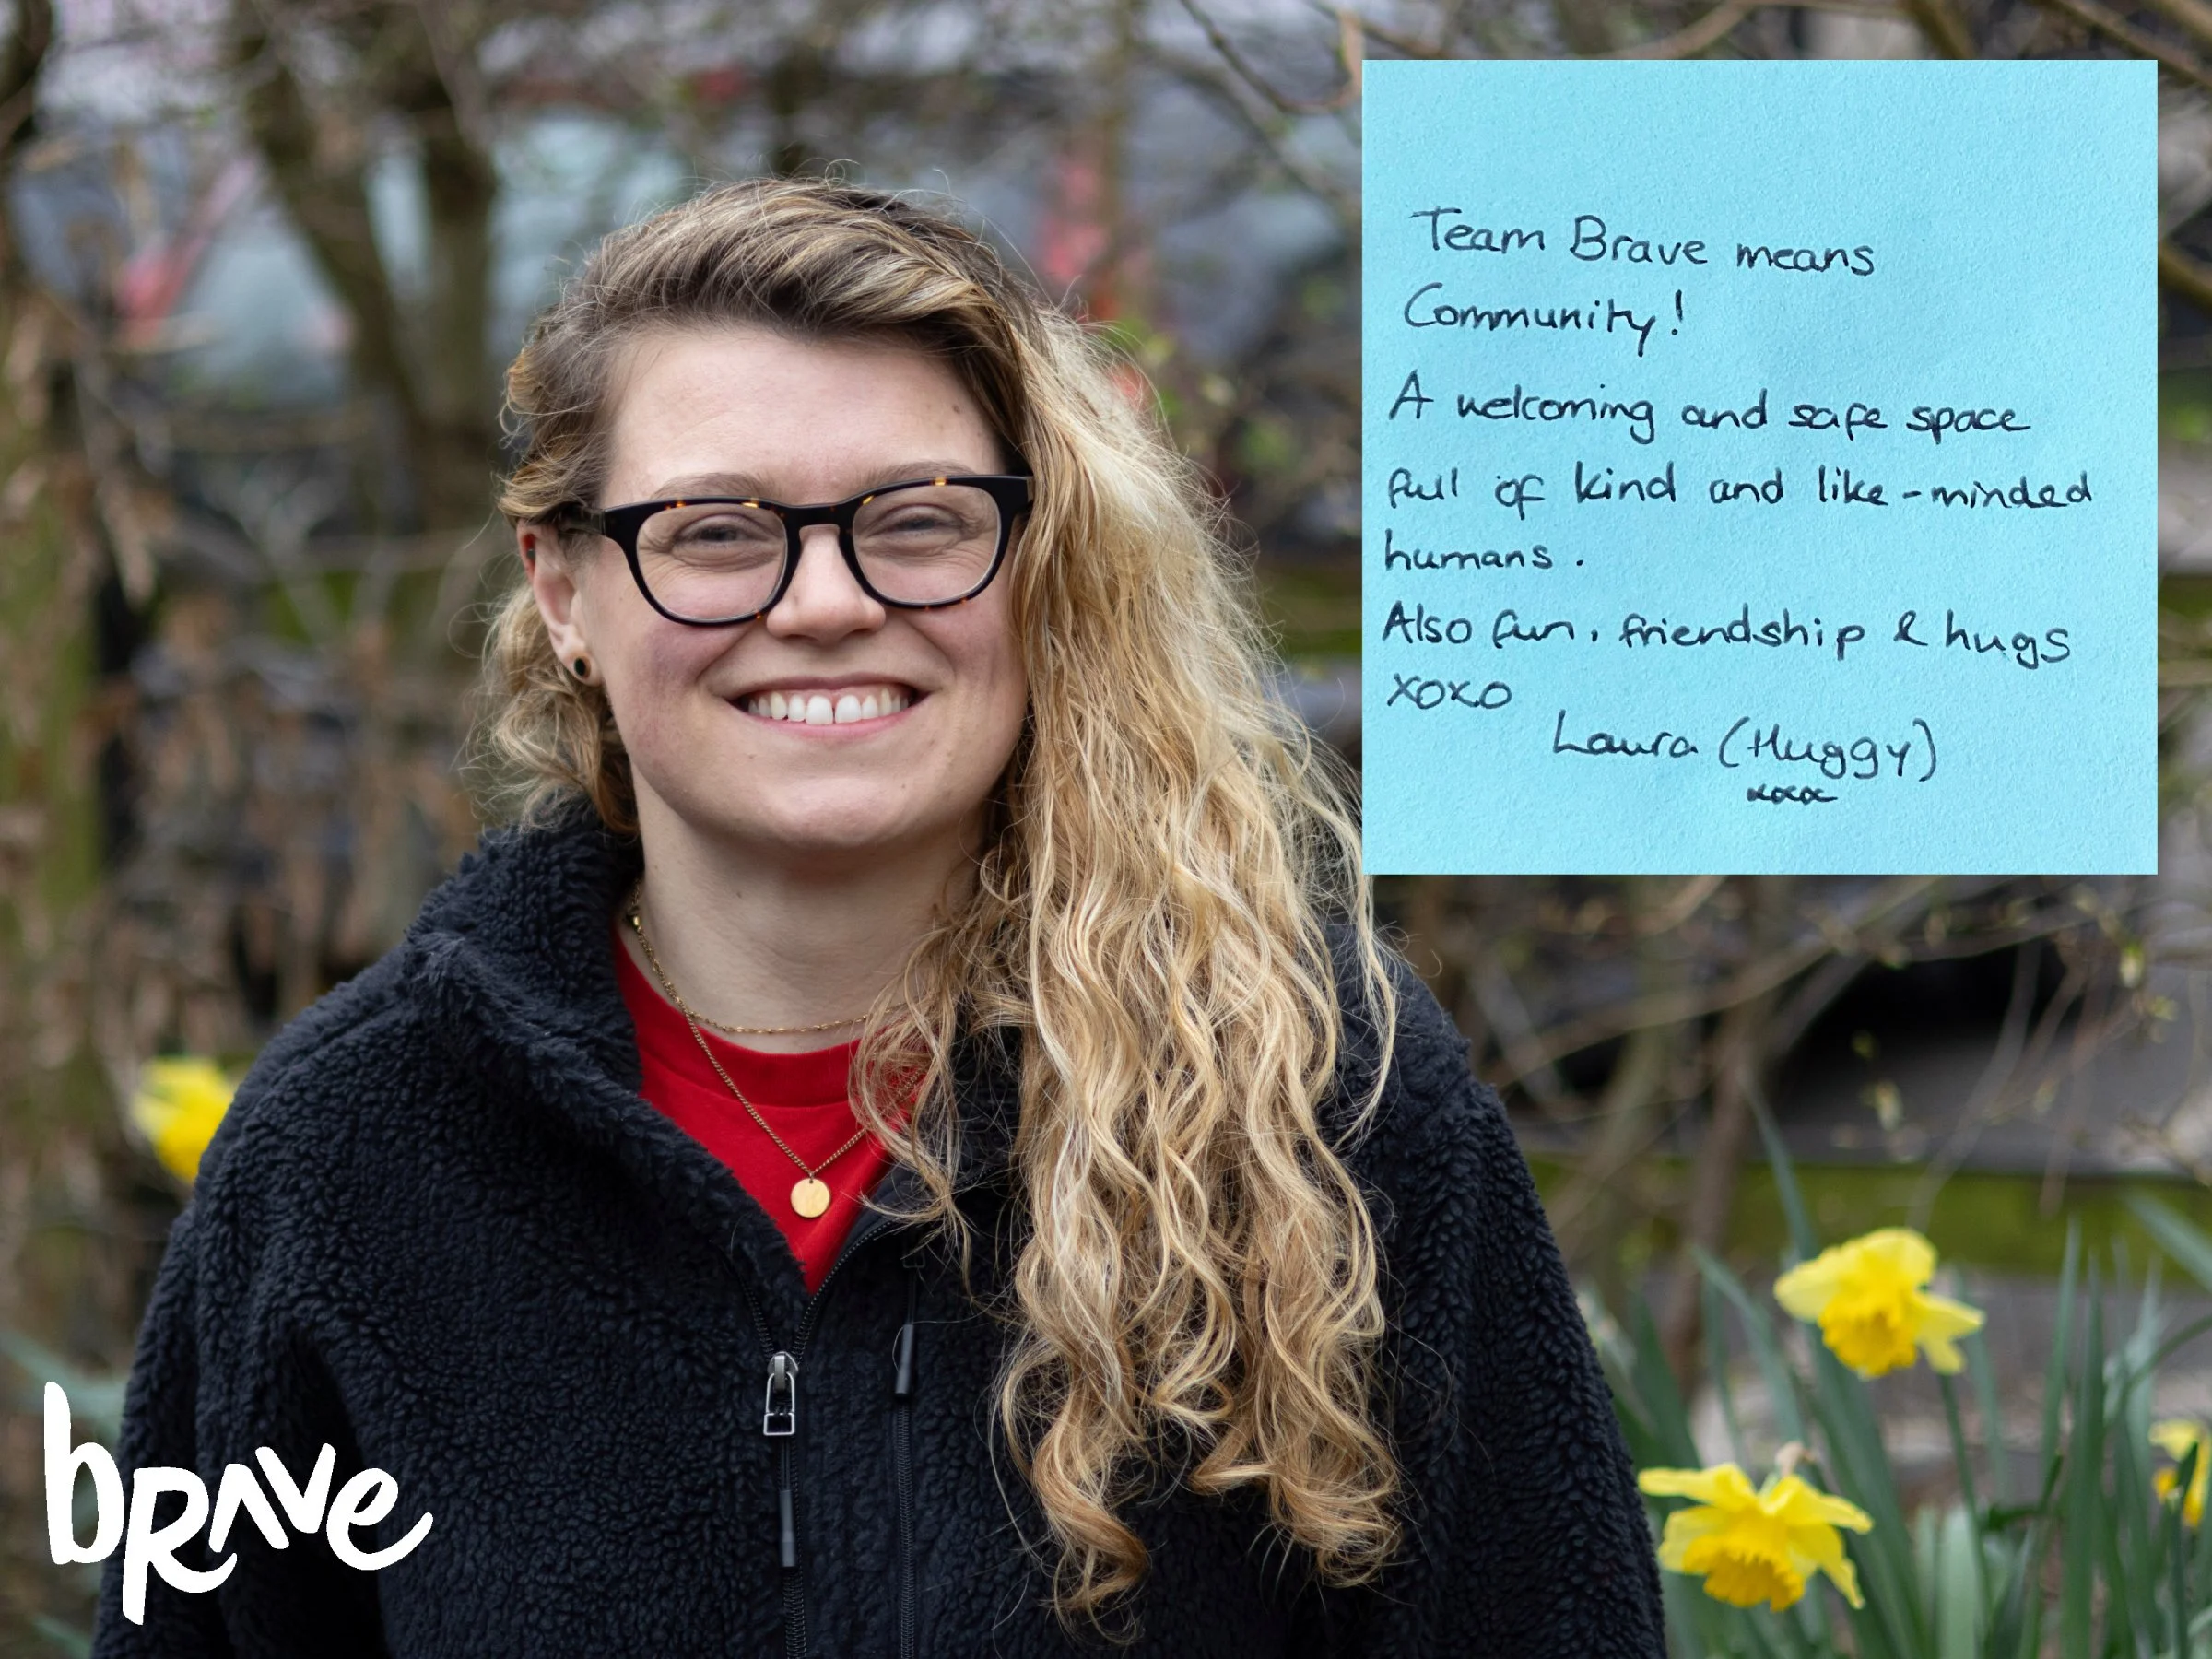 Team Brave means
Community!
A welcoming and safe space
full of kind and like-minded
humans.
Also fun, friendship & hugs
xoxo
Laura (Huggy)
xoxox
brave